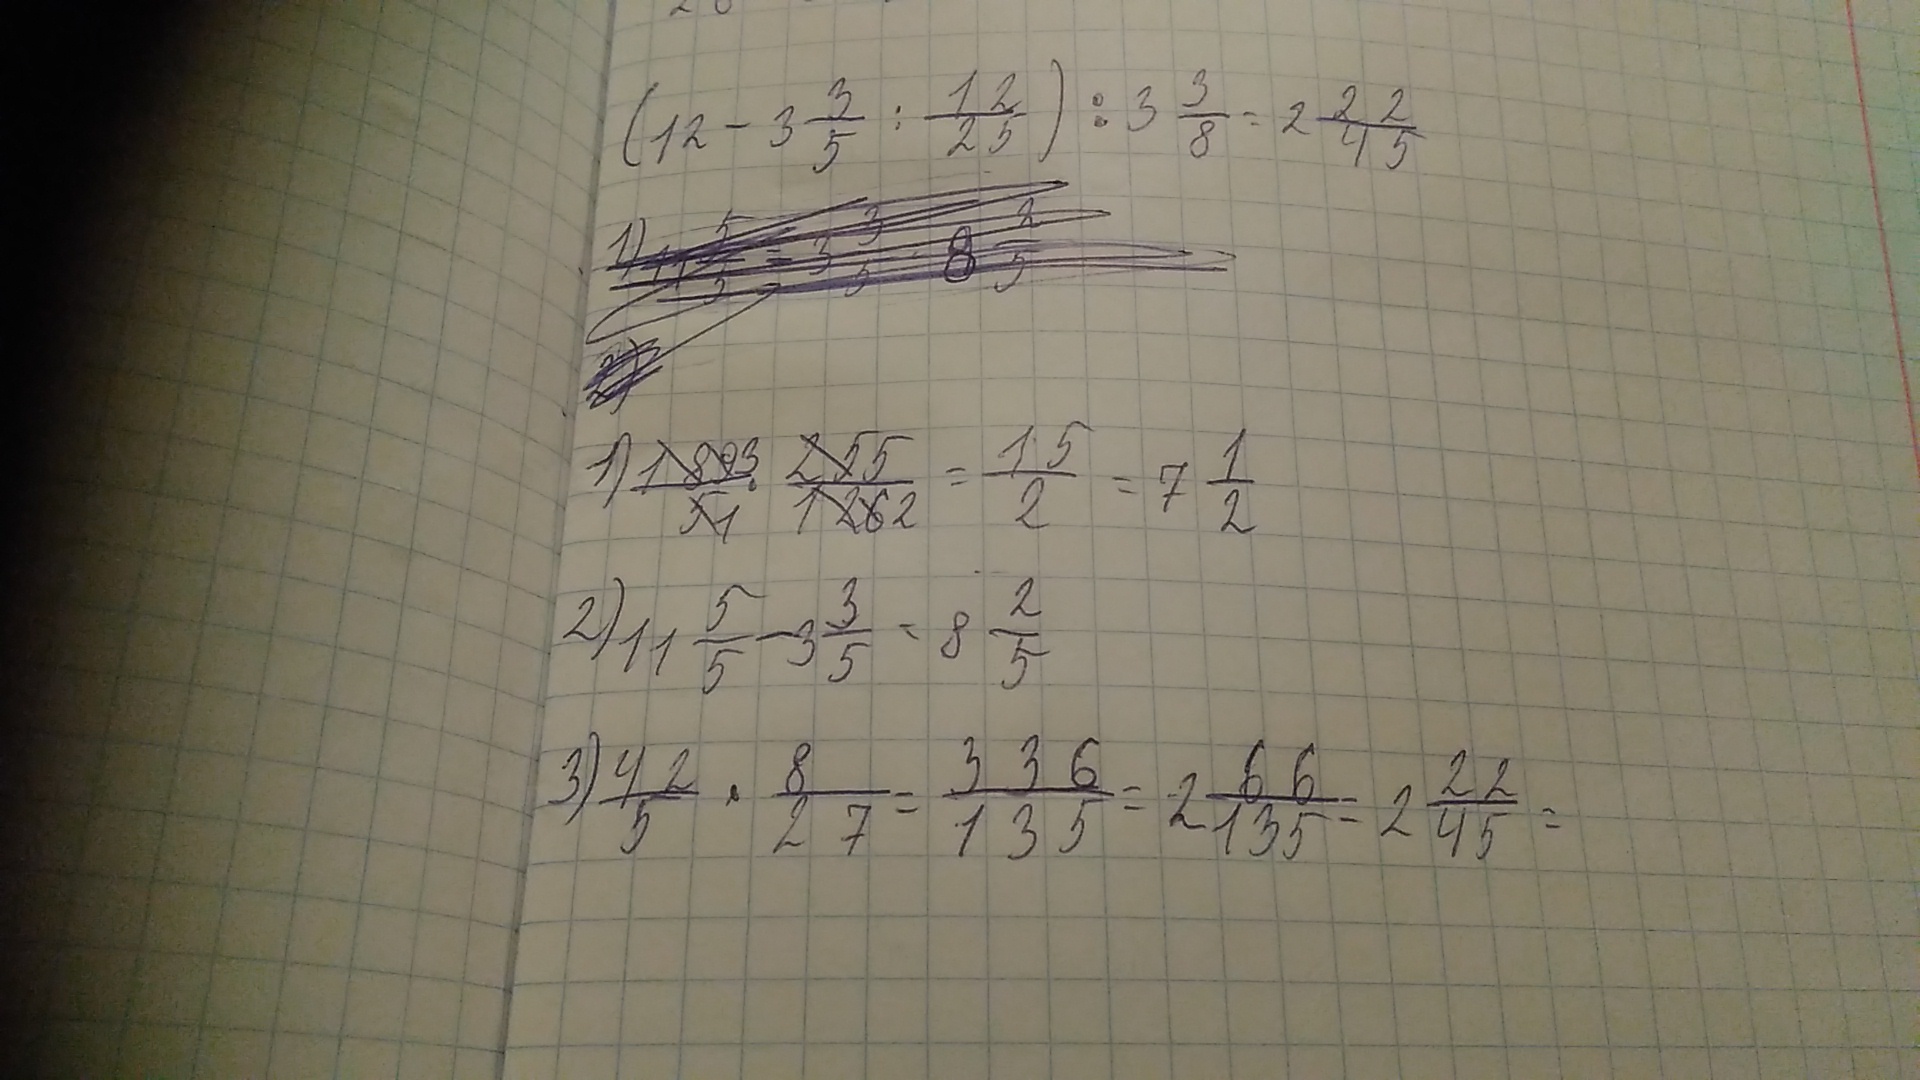 (12 - 3 3/5 : 12/25) : 3 3/8 = 2 22/45
1) 11 5/5 = 3 3/5 - 8 2/5
2)
1) 18 3/5 1 · 25 5/12 6 2 = 15/2 = 7 1/2
2) 11 5/5 - 3 3/5 = 8 2/5
3) 42/5 · 8/27 = 336/135 = 2 66/135 = 2 22/45 =